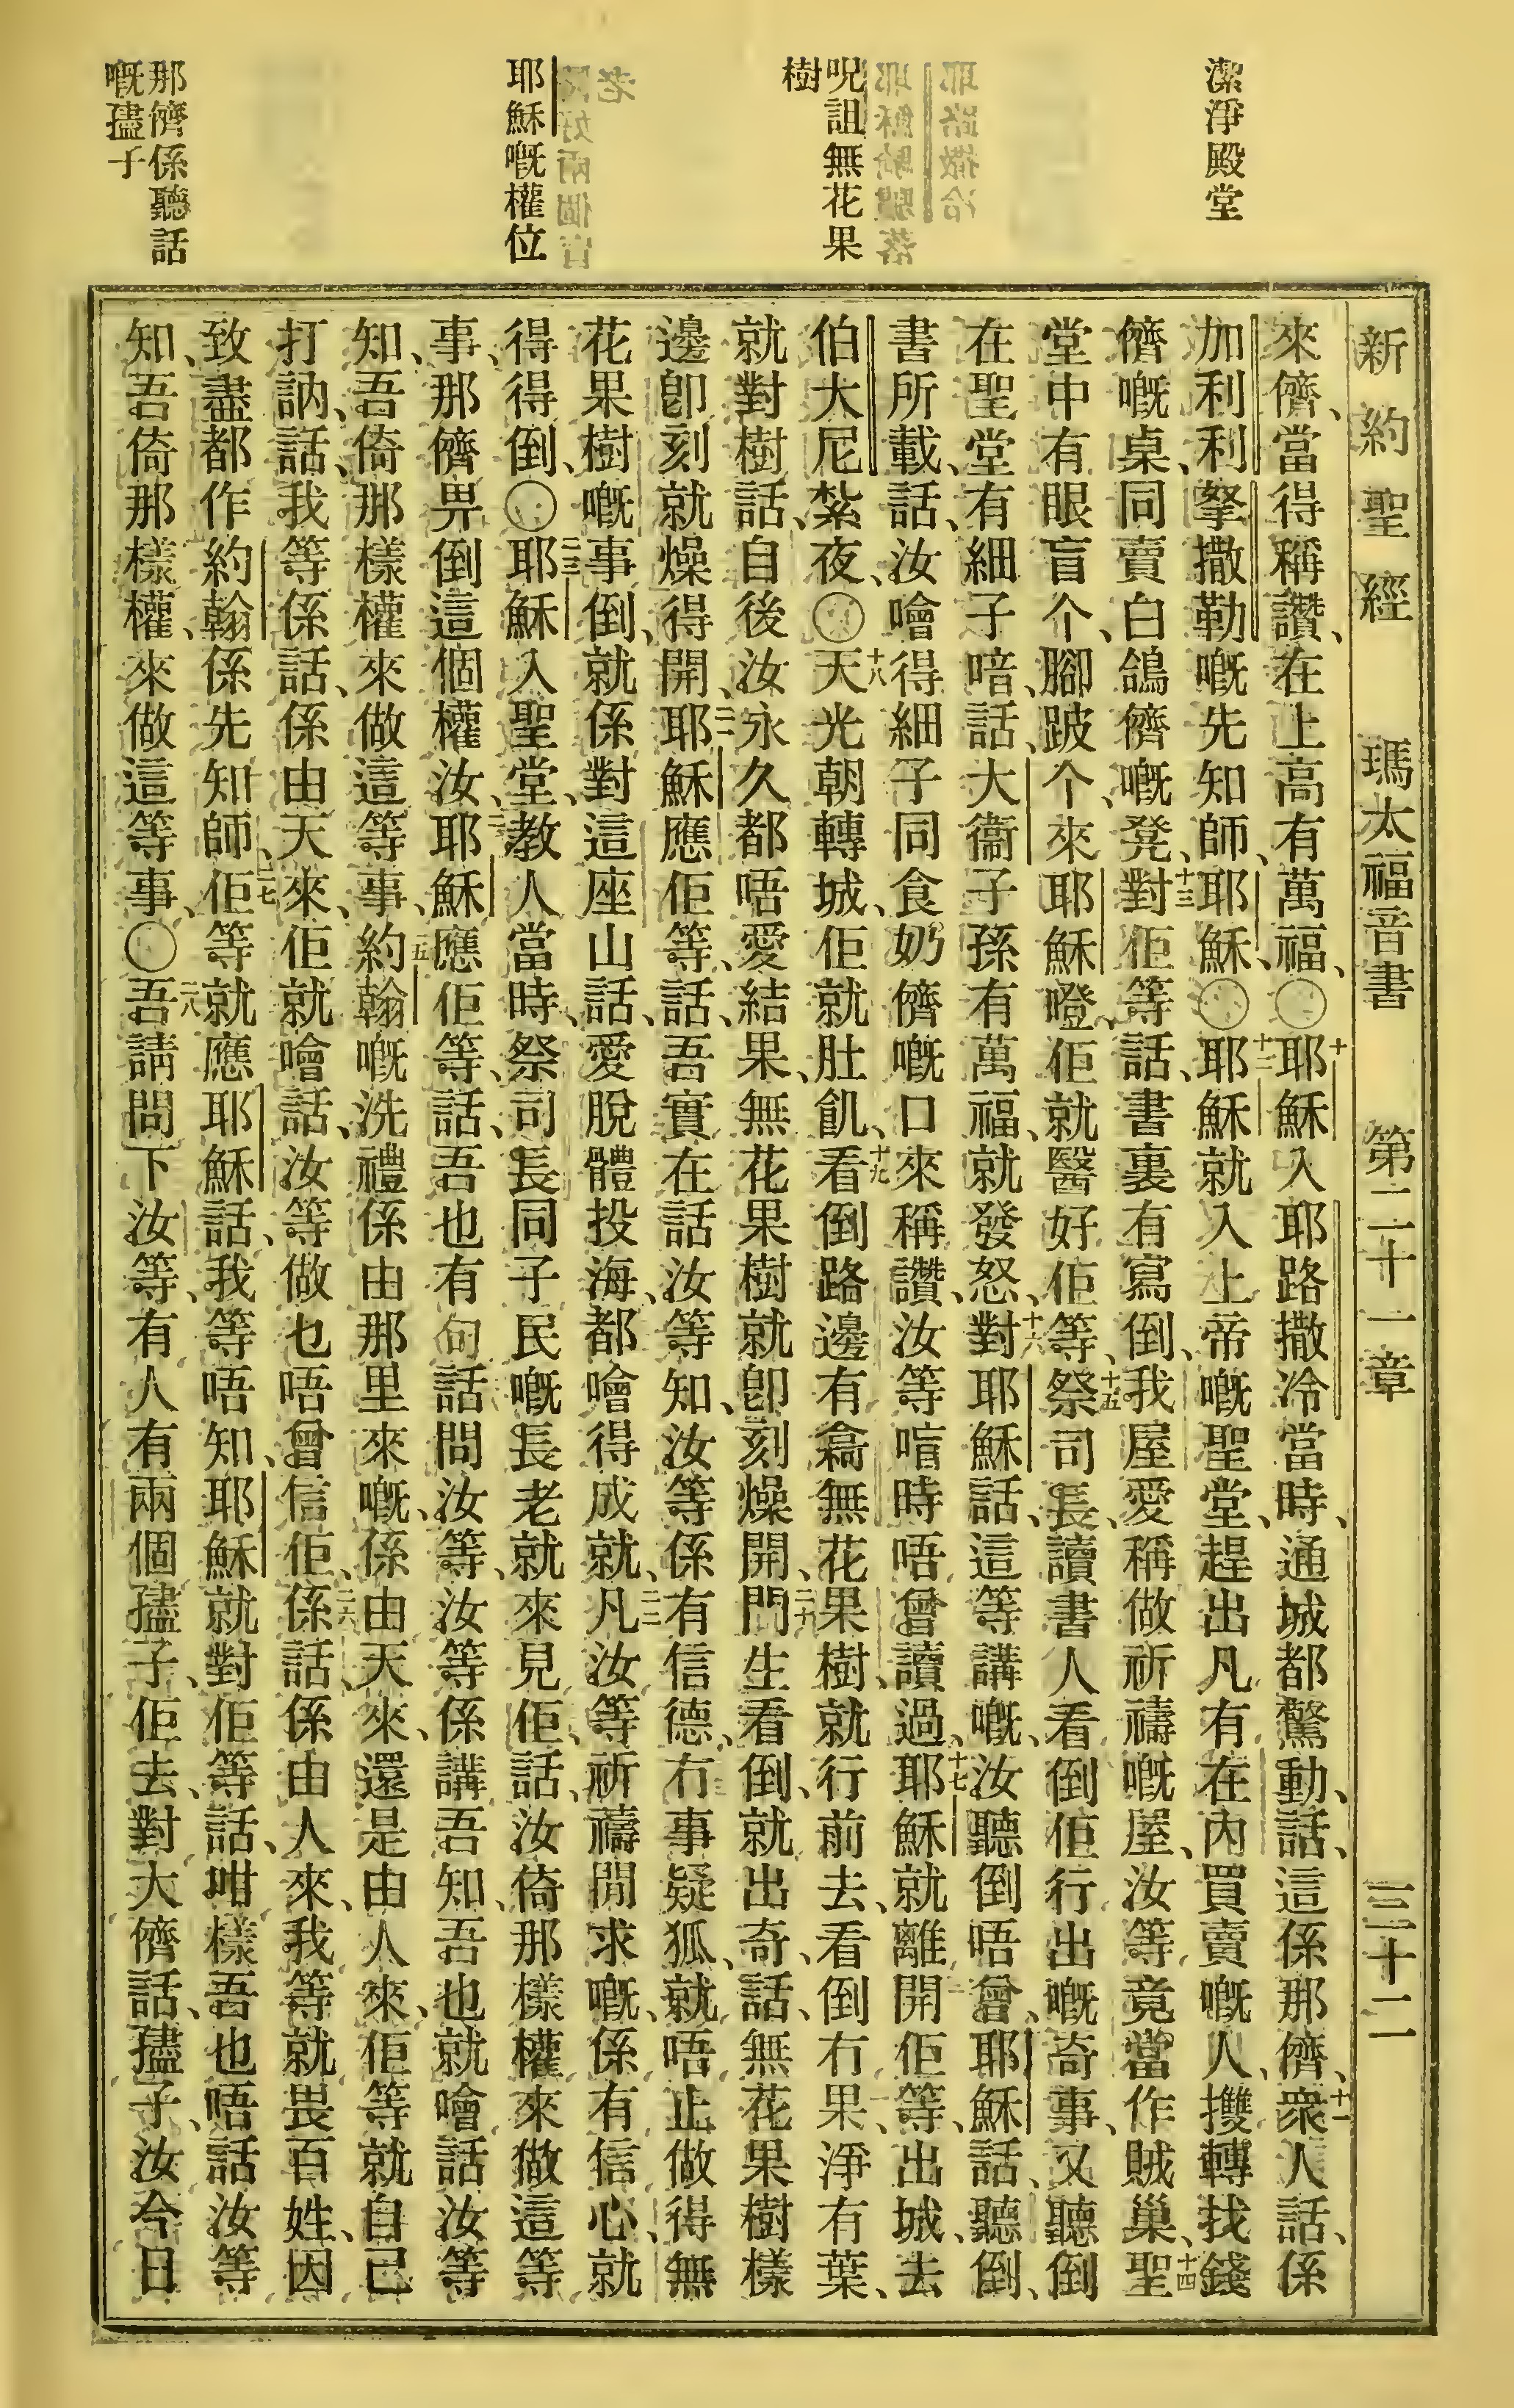 潔淨殿堂
呪詛無花果
樹
耶穌嘅權位
那儕係聽話
嘅孻子
新約聖經 瑪太福音書 第二十一章 三十二
來儕、當得稱讚、在上高有萬福、〇十耶穌入耶路撒冷當時、通城都驚動、話、這係那儕、十一衆人話、係
加利利拏撒勒嘅先知師、耶穌、〇十二耶穌就入上帝嘅聖堂、趕出凡有在內買賣嘅人、㩳轉找錢
儕嘅桌、同賣白鴿儕嘅凳、十三對佢等話、書裏有寫倒、我屋愛稱做祈禱嘅屋、汝等竟當作賊巢、十四聖
堂中有眼盲个、腳跛个、來耶穌嶝、佢就醫好佢等、十五祭司長、讀書人看倒佢行出嘅奇事、又聽倒
在聖堂有細子喑話、大衞子孫有萬福、就發怒、十六對耶穌話、這等講嘅、汝聽倒唔曾、耶穌話、聽倒、
書所載、話、汝噲得細子同食奶儕嘅口來稱讚、汝等喑時唔曾讀過、十七耶穌就離開佢等、出城、去
伯大尼紮夜、〇十八天光朝轉城、佢就肚飢、十九看倒路邊有󠄁無花果樹、就行前去、看倒冇果、淨有葉、
就對樹話、自後汝永久都唔愛結果、無花果樹就卽刻燥開、二十門生看倒、就出奇、話、無花果樹樣
邊卽刻就燥得開、二一耶穌應佢等、話、吾實在話汝等知、汝等係有信德、冇事疑狐、就唔止做得無
花果樹嘅事倒、就係對這座山話、愛脫體投海、都噲得成就、二二凡汝等祈禱閒求嘅、係有信心、就
得得倒、〇二三耶穌入聖堂、教人當時、祭司長同子民嘅長老就來見佢、話、汝倚那樣權來做這等
事、那儕畀倒這個權汝、二四耶穌應佢等、話、吾也有句話問汝等、汝等係講吾知、吾也就噲話汝等
知、吾倚那樣權來做這等事、二五約翰嘅洗禮係由那里來嘅、係由天來、還是由人來、佢等就自己
打訥、話、我等係話、係由天來、佢就噲話、汝等做乜唔曾信佢、二六係話、係由人來、我等就畏百姓、因
致盡都作約翰係先知師、二七佢等就應耶穌話、我等唔知、耶穌就對佢等話、咁樣吾也唔話汝等
知、吾倚那樣權、來做這等事、〇二八吾請問下汝等、有人有兩個孻子、佢去、對大儕話、孻子、汝今日